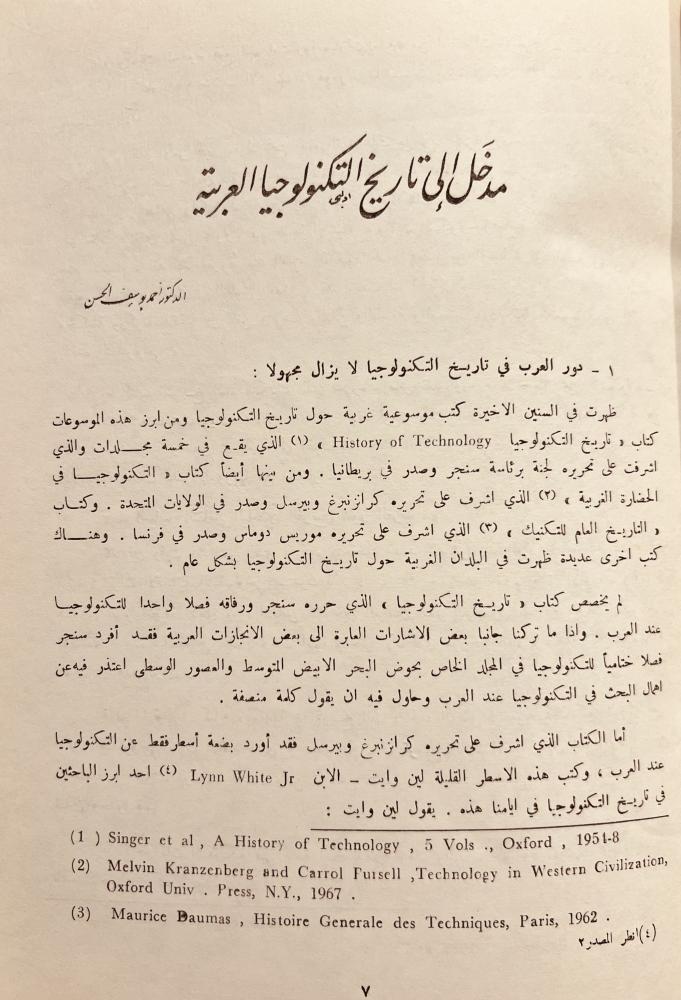 مدخَل إلى تاريخ التكنولوجيا العربية
الدكتور أحمد يوسف الحسن
١ ـ دور العرب في تاريـخ التـكنولوجيا لا يزال مجهولا :
ظهرت في السنين الاخيرة كتب موسوعية غربية حول تاريـخ التـكنولوجيا ومن ابرز هذه الموسوعات
كتاب « تاريـخ التكنولوجيا History of Technology » (١) الذي يقـع في خمسة مجـلدات والذي
اشرفت على تحريره لجنة برئاسة سنجر وصدر في بريطانيا . ومن بينها أيضاً كتاب « التكنولوجيـا في
الحضارة الغربية » (٢) الذي اشرف على تحريره كرانزنبرغ وبيرسل وصدر في الولايات المتحدة . وكتـاب
« التاريـخ العام للتكنيك » (٣) الذي اشرف على تحريره موريس دوماس وصدر في فرنسا . وهنـاك
كتب اخرى عديدة ظهرت في البلدان الغربية حول تاريـخ التـكنولوجيا بشكل عام .
لم يخصص كتاب « تاريـخ التـكنولوجيا » الذي حرره سنجر ورفاقه فصلا واحدا للتـكنولوجيـا
عند العرب . واذا ما تركنا جانبا بعض الاشارات العابرة الى بعض الانجازات العربية فقـد أفرد سنجر
فصلا ختامياً للتكنولوجيا في المجلد الخاص بحوض البحر الابيض المتوسط والعصور الوسطى اعتذر فيه عن
اهمال البحث في التكنولوجيا عند العرب وحاول فيه ان يقول كلمة منصفة .
أما الكتاب الذي اشرف على تحريره كرانزنبرغ وبيرسل فقد أورد بضعة أسطر فقط عن التكنولوجيا
عند العرب ، وكتب هذه الاسطر القليلة لين وايت ـ الابن Lynn White Jr (٤) احد ابرز الباحثين
في تاريـخ التكنولوجيا في ايامنا هذه . يقول لين وايت :
(1 ) Singer et al , A History of Technology , 5 Vols ., Oxford , 1954-8
(2) Melvin Kranzenberg and Carrol Fursell ,Technology in Western Civilization,
Oxford Univ . Press, N.Y., 1967 .
(3) Maurice Daumas , Histoire Generale des Techniques, Paris, 1962 .
(٤) انظر المصدر ٢
٧